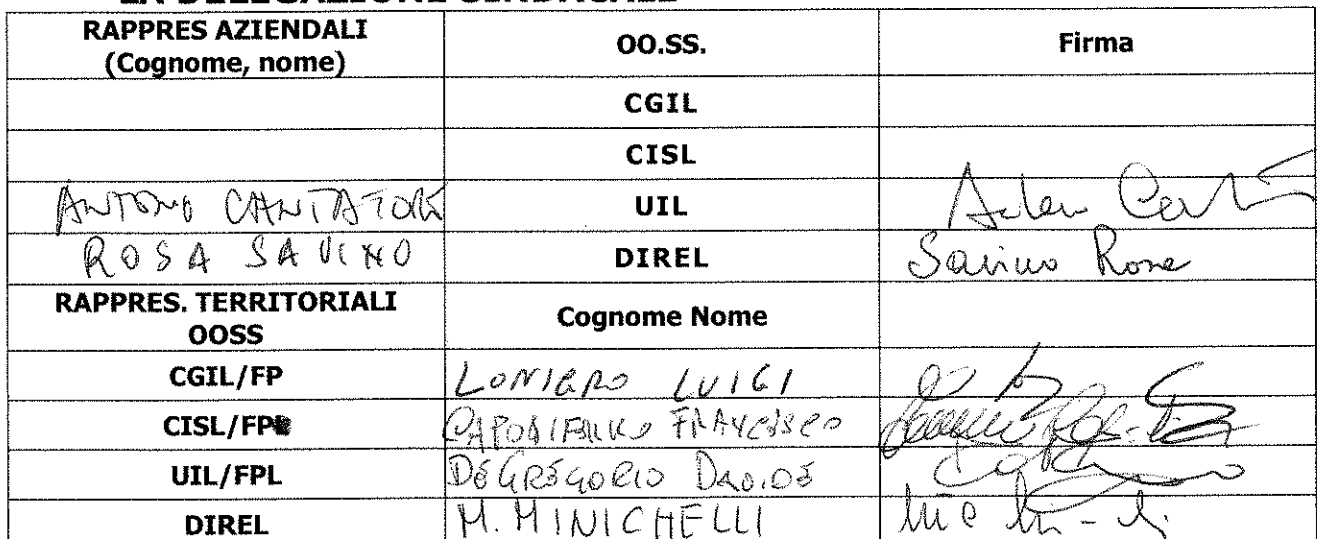 LA DELEGAZIONE SINDACALE
RAPPRES AZIENDALI
(Cognome, nome)
OO.SS.
Firma
CGIL
CISL
ANTONO CANTATORE
UIL
ROSA SAVINO
DIREL
Savino Rosa
RAPPRES. TERRITORIALI
OOSS
Cognome Nome
CGIL/FP
LONIGRO LUIGI
CISL/FP
CAPODIFERRO FRANCESCO
UIL/FPL
DEGREGORIO DAVIDE
DIREL
M. MINICHELLI